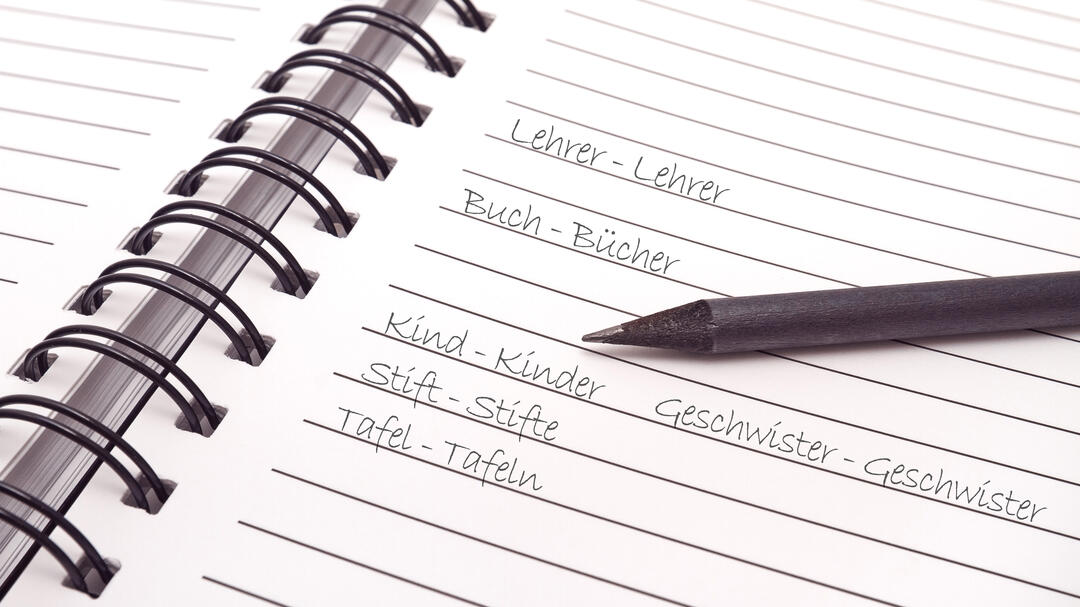 Lehrer - Lehrer
Buch - Bücher
Kind - Kinder
Geschwister - Geschwister
Stift - Stifte
Tafel - Tafeln